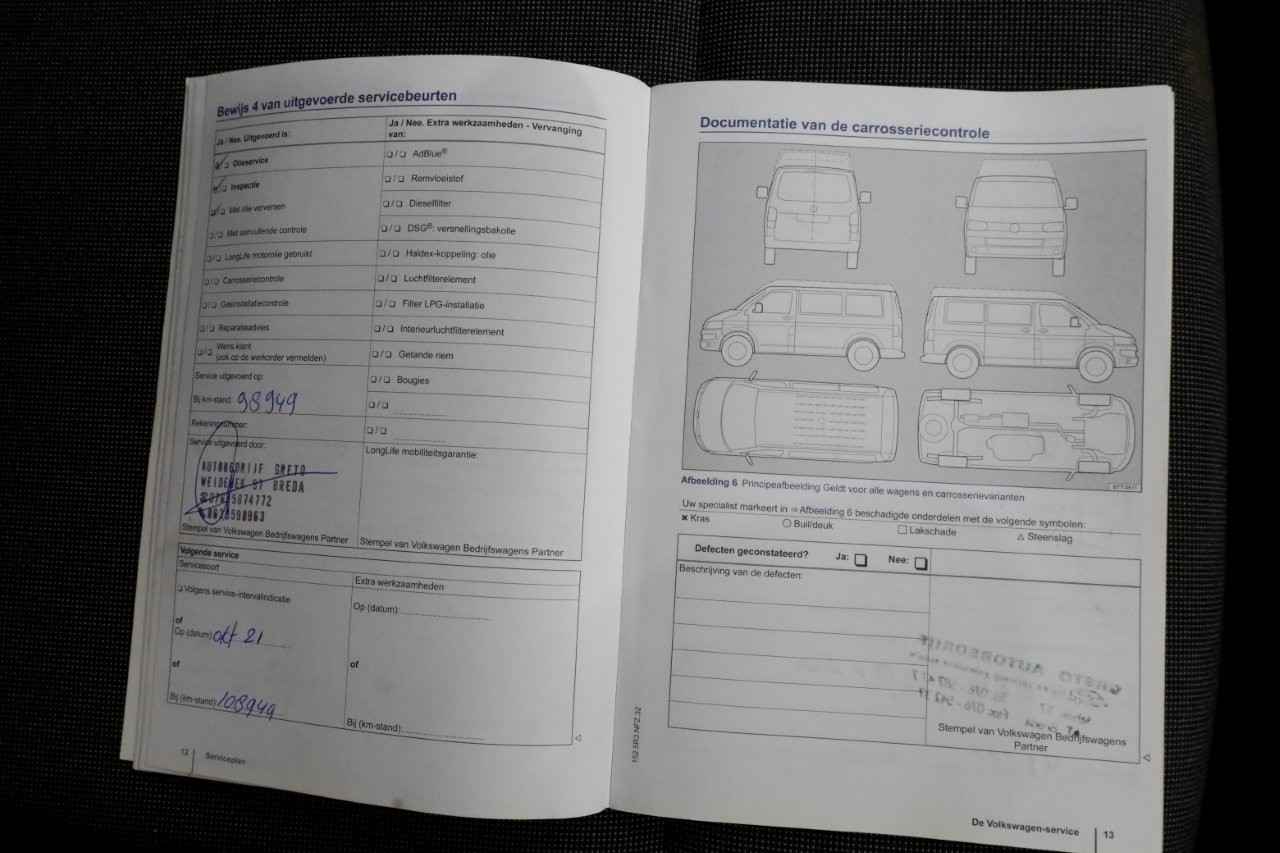 Bewijs 4 van uitgevoerde servicebeurten
Ja / Nee. Uitgevoerd is:
Ja / Nee. Extra werkzaamheden - Vervanging van:
Olieservice
Inspectie
Met olie verversen
Met aanvullende controle
LongLife motorolie gebruikt
Carrosseriecontrole
Gasinstallatiecontrole
Reparatieadvies
Wens klant
(ook op de werkorder vermelden)
Service uitgevoerd op:
Bij km-stand: 98949
Rekeningnummer:
Service uitgevoerd door:
AUTOBEDRIJF GRETO
BREDA
Stempel van Volkswagen Bedrijfswagens Partner
AdBlue®
Remvloeistof
Dieselfilter
DSG®: versnellingsbakolie
Haldex-koppeling: olie
Luchtfilterelement
Filter LPG-installatie
Interieurluchtfilterelement
Getande riem
Bougies
LongLife mobiliteitsgarantie:
Stempel van Volkswagen Bedrijfswagens Partner
Volgende service
Servicesoort
Volgens service-intervalindicatie
of
Op (datum) okt 21
of
Bij (km-stand) 108949
Extra werkzaamheden
Op (datum):
of
Bij (km-stand):
12
Serviceplan
152.5R3.NFZ.32
Documentatie van de carrosseriecontrole
Afbeelding 6 Principeafbeelding Geldt voor alle wagens en carrosserievarianten
Uw specialist markeert in ⇒ Afbeelding 6 beschadigde onderdelen met de volgende symbolen:
✖ Kras
○ Buil/deuk
□ Lakschade
△ Steenslag
Defecten geconstateerd? Ja: Nee:
Beschrijving van de defecten:
GRETO AUTOBEDRIJF
Stempel van Volkswagen Bedrijfswagens
Partner
De Volkswagen-service
13